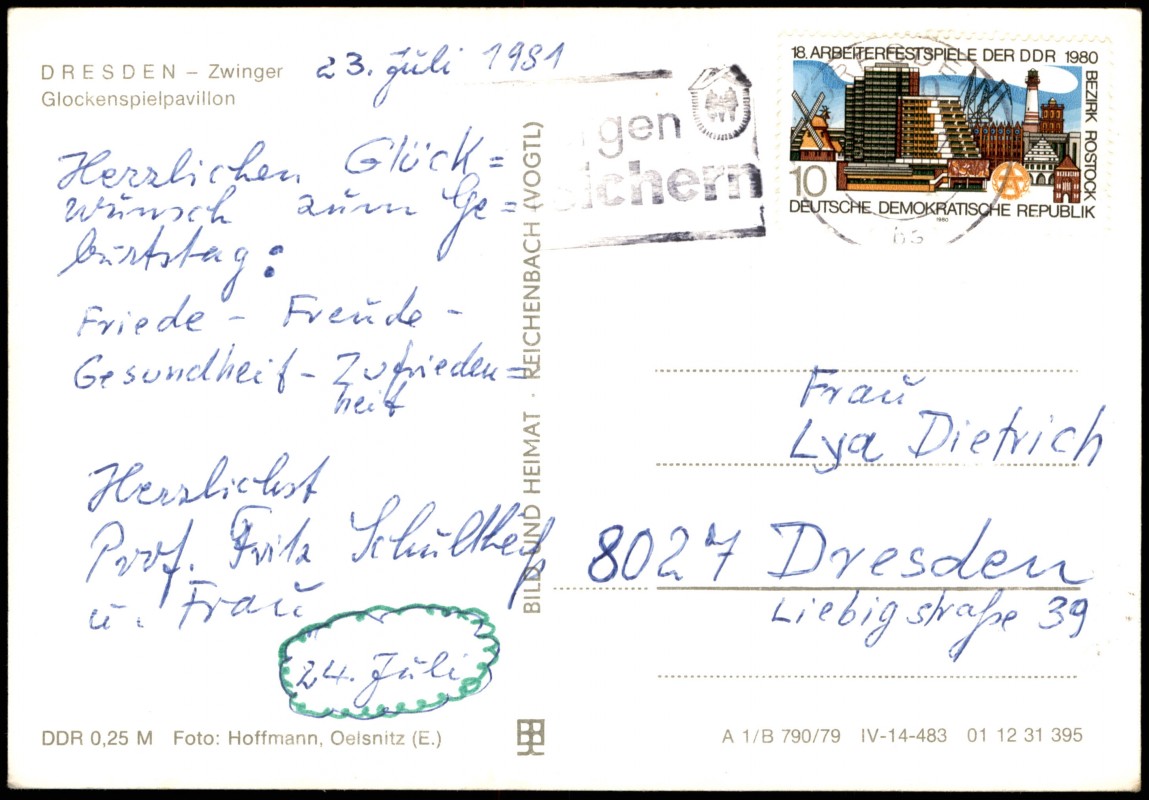 DRESDEN – Zwinger
Glockenspielpavillon
23. Juli 1981
Herzlichen Glück=
wunsch zum Ge=
burtstag:
Friede – Freude –
Gesundheit – Zufrieden=
heit
Herzlichst
Prof. Fritz Schultheiß
u. Frau
24. Juli
DDR 0,25 M Foto: Hoffmann, Oelsnitz (E.)
BILD UND HEIMAT · REICHENBACH (VOGTL)
gen
sichern
18. ARBEITERFESTSPIELE DER DDR 1980
BEZIRK ROSTOCK
10
DEUTSCHE DEMOKRATISCHE REPUBLIK
1980
Frau
Lya Dietrich
8027 Dresden
Liebigstraße 39
A 1/B 790/79 IV-14-483 01 12 31 395